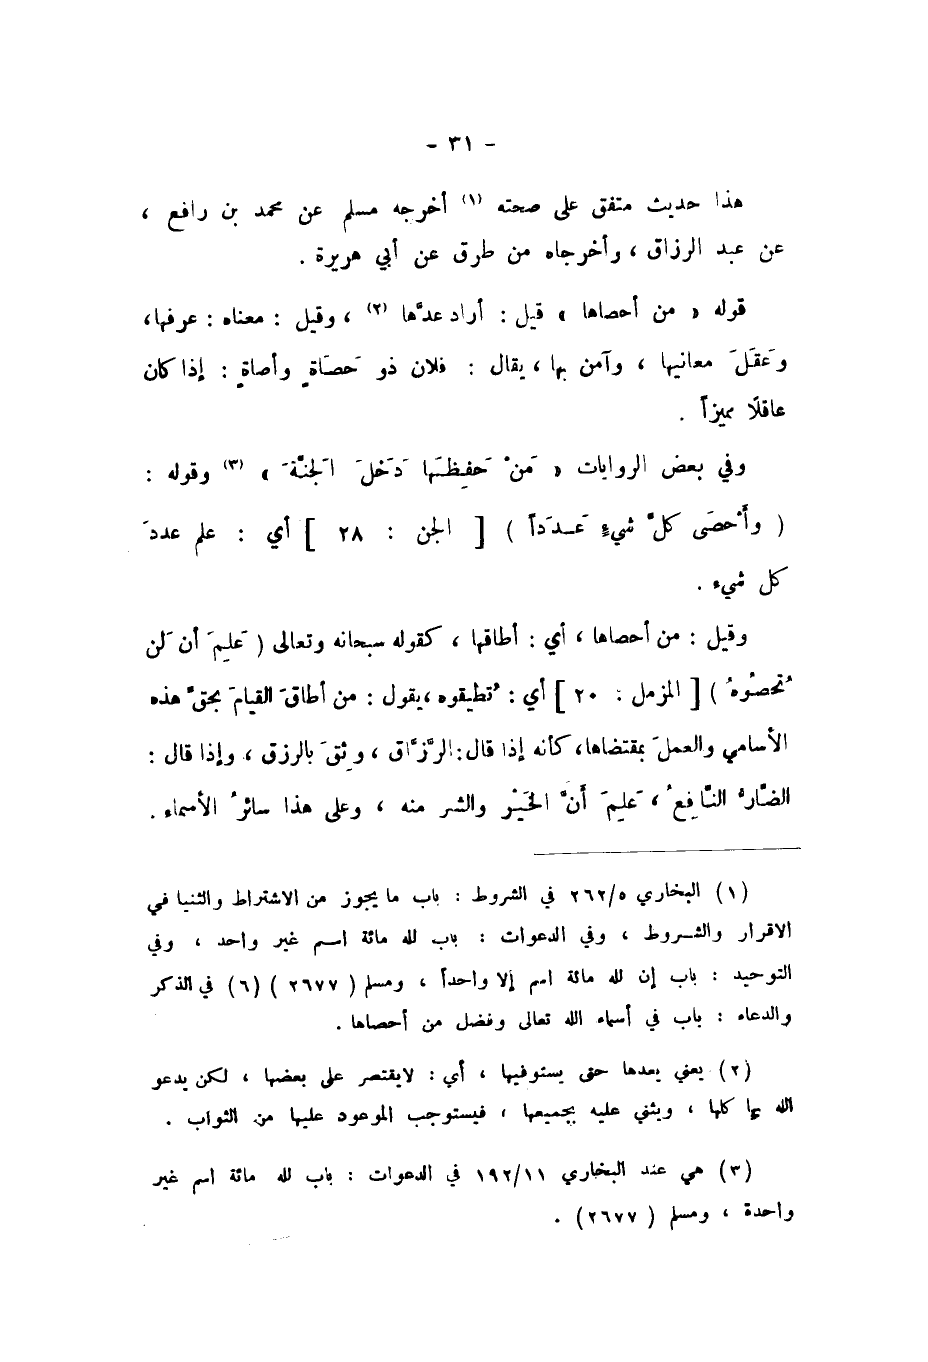 - ٣١ -
هذا حديث متفق على صحته (١) أخرجه مسلم عن محمد بن رافع ،
عن عبد الرزاق ، وأخرجاه من طرق عن أبي هريرة .
قوله « من أحصاها » قيل : أراد عدَّها (٢) ، وقيل : معناه : عرفها،
وَعَقَلَ معانيها ، وآمن بها ، يقال : فلان ذو حَصَاةٍ وأصاةٍ : إذا كان
عاقلًا مميزاً .
وفي بعض الروايات « مَنْ حَفِظَهَا دَخَلَ الجَنَّةَ » (٣) وقوله :
( وأَحْصَى كلَّ شيءٍ عَدَدَاً ) [ الجن : ٢٨ ] أي : علم عددَ
كل شيء .
وقيل : من أحصاها ، أي : أطاقها ، كقوله سبحانه وتعالى ( عَلِمَ أن لَن
تُحصُوهُ ) [ المزمل : ٢٠ ] أي : تُطيقوه ، يقول : من أطاقَ القيامَ بحقِّ هذه
الأسامي والعملَ بمقتضاها، كأنه إذا قال : الرَّزَّاق ، وثِقَ بالرزق ، وإذا قال :
الضَّارُّ النَّافِعُ ، عَلِمَ أَنَّ الخَيْرَ والشر منه ، وعلى هذا سائرُ الأسماء .
(١) البخاري ٢٦٢/٥ في الشروط : باب ما يجوز من الاشتراط والثنيا في
الاقرار والشروط ، وفي الدعوات : باب لله مائة اسم غير واحد ، وفي
التوحيد : باب إن لله مائة اسم إلا واحداً ، ومسلم ( ٢٦٧٧ ) (٦) في الذكر
والدعاء : باب في أسماء الله تعالى وفضل من أحصاها .
(٢) يعني يعدها حتى يستوفيها ، أي : لايقتصر على بعضها ، لكن يدعو
الله بها كلها ، ويثني عليه بجميعها ، فيستوجب الموعود عليها من الثواب .
(٣) هي عند البخاري ١٩٢/١١ في الدعوات : باب لله مائة اسم غير
واحدة ، ومسلم ( ٢٦٧٧) .